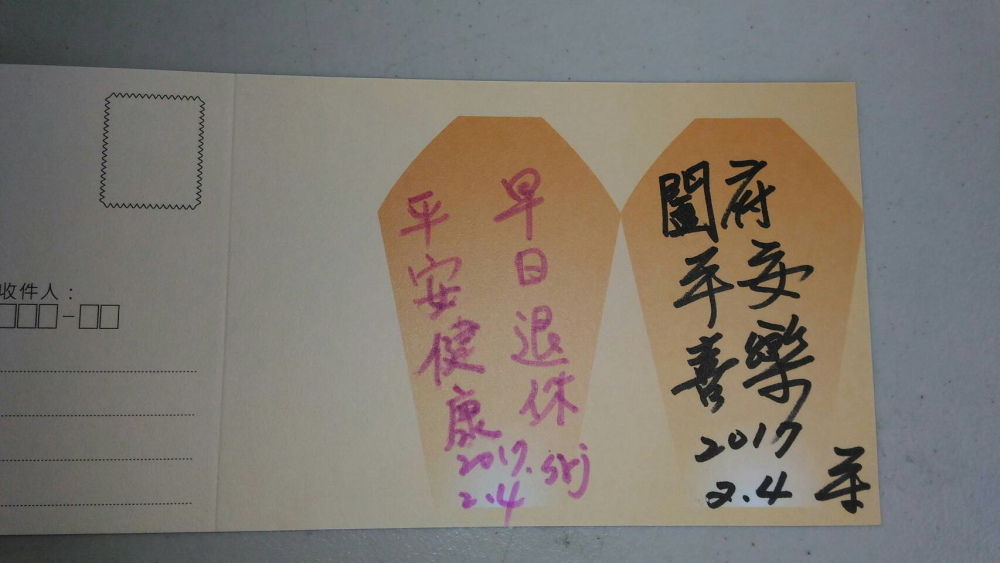 收件人：
闔府
平安
喜樂
2017
2.4
平
早日退休
平安健康
2017. srj
2.4